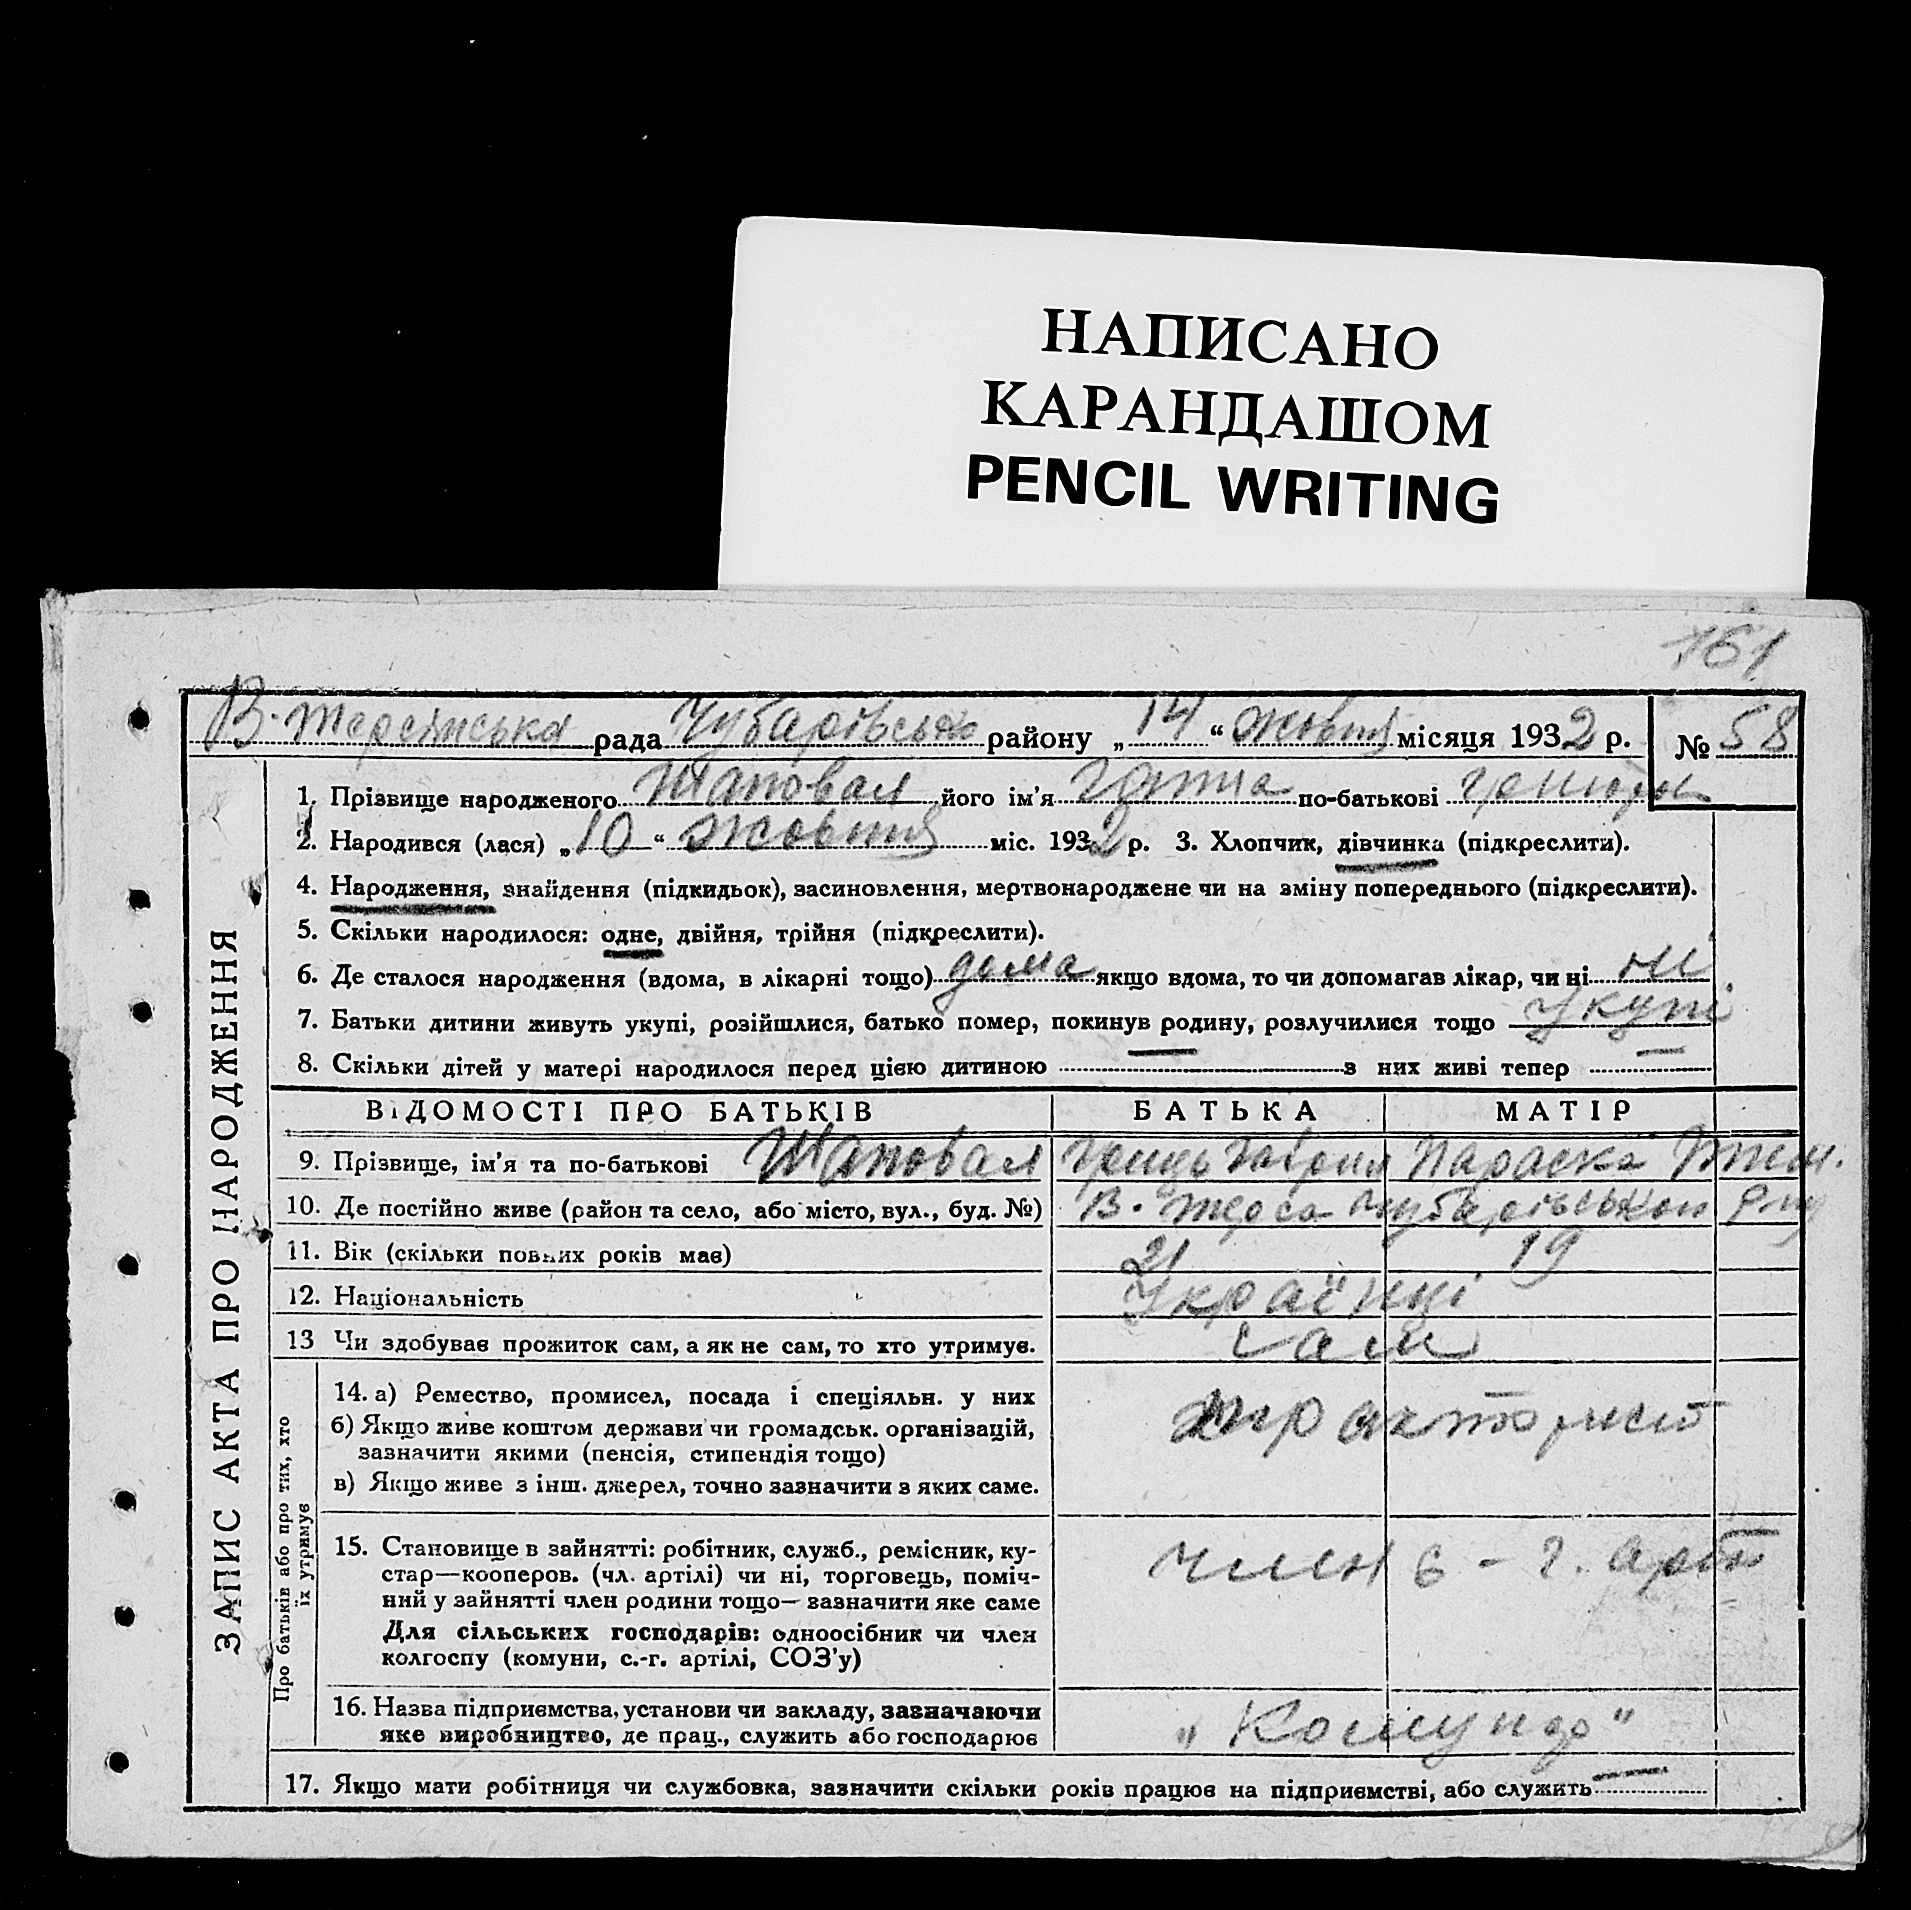 НАПИСАНО
КАРАНДАШОМ
PENCIL WRITING
161
В. Терсянська рада Чубарівсько району „ 14 “ жовтня місяця 1932 р. № 58
ЗАПИС АКТА ПРО НАРОДЖЕННЯ
1. Прізвище народженого Шаповал його ім'я Ганна по-батькові
2. Народився (лася) „ 10 “ жовтня міс. 1932 р. 3. Хлопчик, дівчинка (підкреслити).
4. Народження, знайдення (підкидьок), засиновлення, мертвонароджене чи на зміну попереднього (підкреслити).
5. Скільки народилося: одне, двійня, трійня (підкреслити).
6. Де сталося народження (вдома, в лікарні тощо) дома якщо вдома, то чи допомагав лікар, чи ні ні
7. Батьки дитини живуть укупі, розійшлися, батько помер, покинув родину, розлучилися тощо Укупі
8. Скільки дітей у матері народилося перед цією дитиною — з них живі тепер —
ВІДОМОСТІ ПРО БАТЬКІВ БАТЬКА МАТІР
9. Прізвище, ім'я та по-батькові Шаповал Гриць Гаврил Параска
10. Де постійно живе (район та село, або місто, вул., буд. №) В. Терса Чубарівськом р-ну
11. Вік (скільки повних років має) 21 19
12. Національність Українці
13 Чи здобуває прожиток сам, а як не сам, то хто утримує. сам
Про батьків або про тих, хто
їх утримує
14. а) Ремество, промисел, посада і спеціяльн. у них тракторист
б) Якщо живе коштом держави чи громадськ. організацій,
зазначити якими (пенсія, стипендія тощо)
в) Якщо живе з інш. джерел, точно зазначити з яких саме.
15. Становище в зайнятті: робітник, служб., ремісник, ку-
стар—кооперов. (чл. артілі) чи ні, торговець, поміч- член с-г. арт
ний у зайнятті член родини тощо— зазначити яке саме
Для сільських господарів: одноосібник чи член
колгоспу (комуни, с.-г. артілі, СОЗ'у)
16. Назва підприємства, установи чи закладу, зазначаючи
яке виробництво, де прац., служить або господарює
17. Якщо мати робітниця чи службовка, зазначити скільки років працює на підприємстві, або служить —